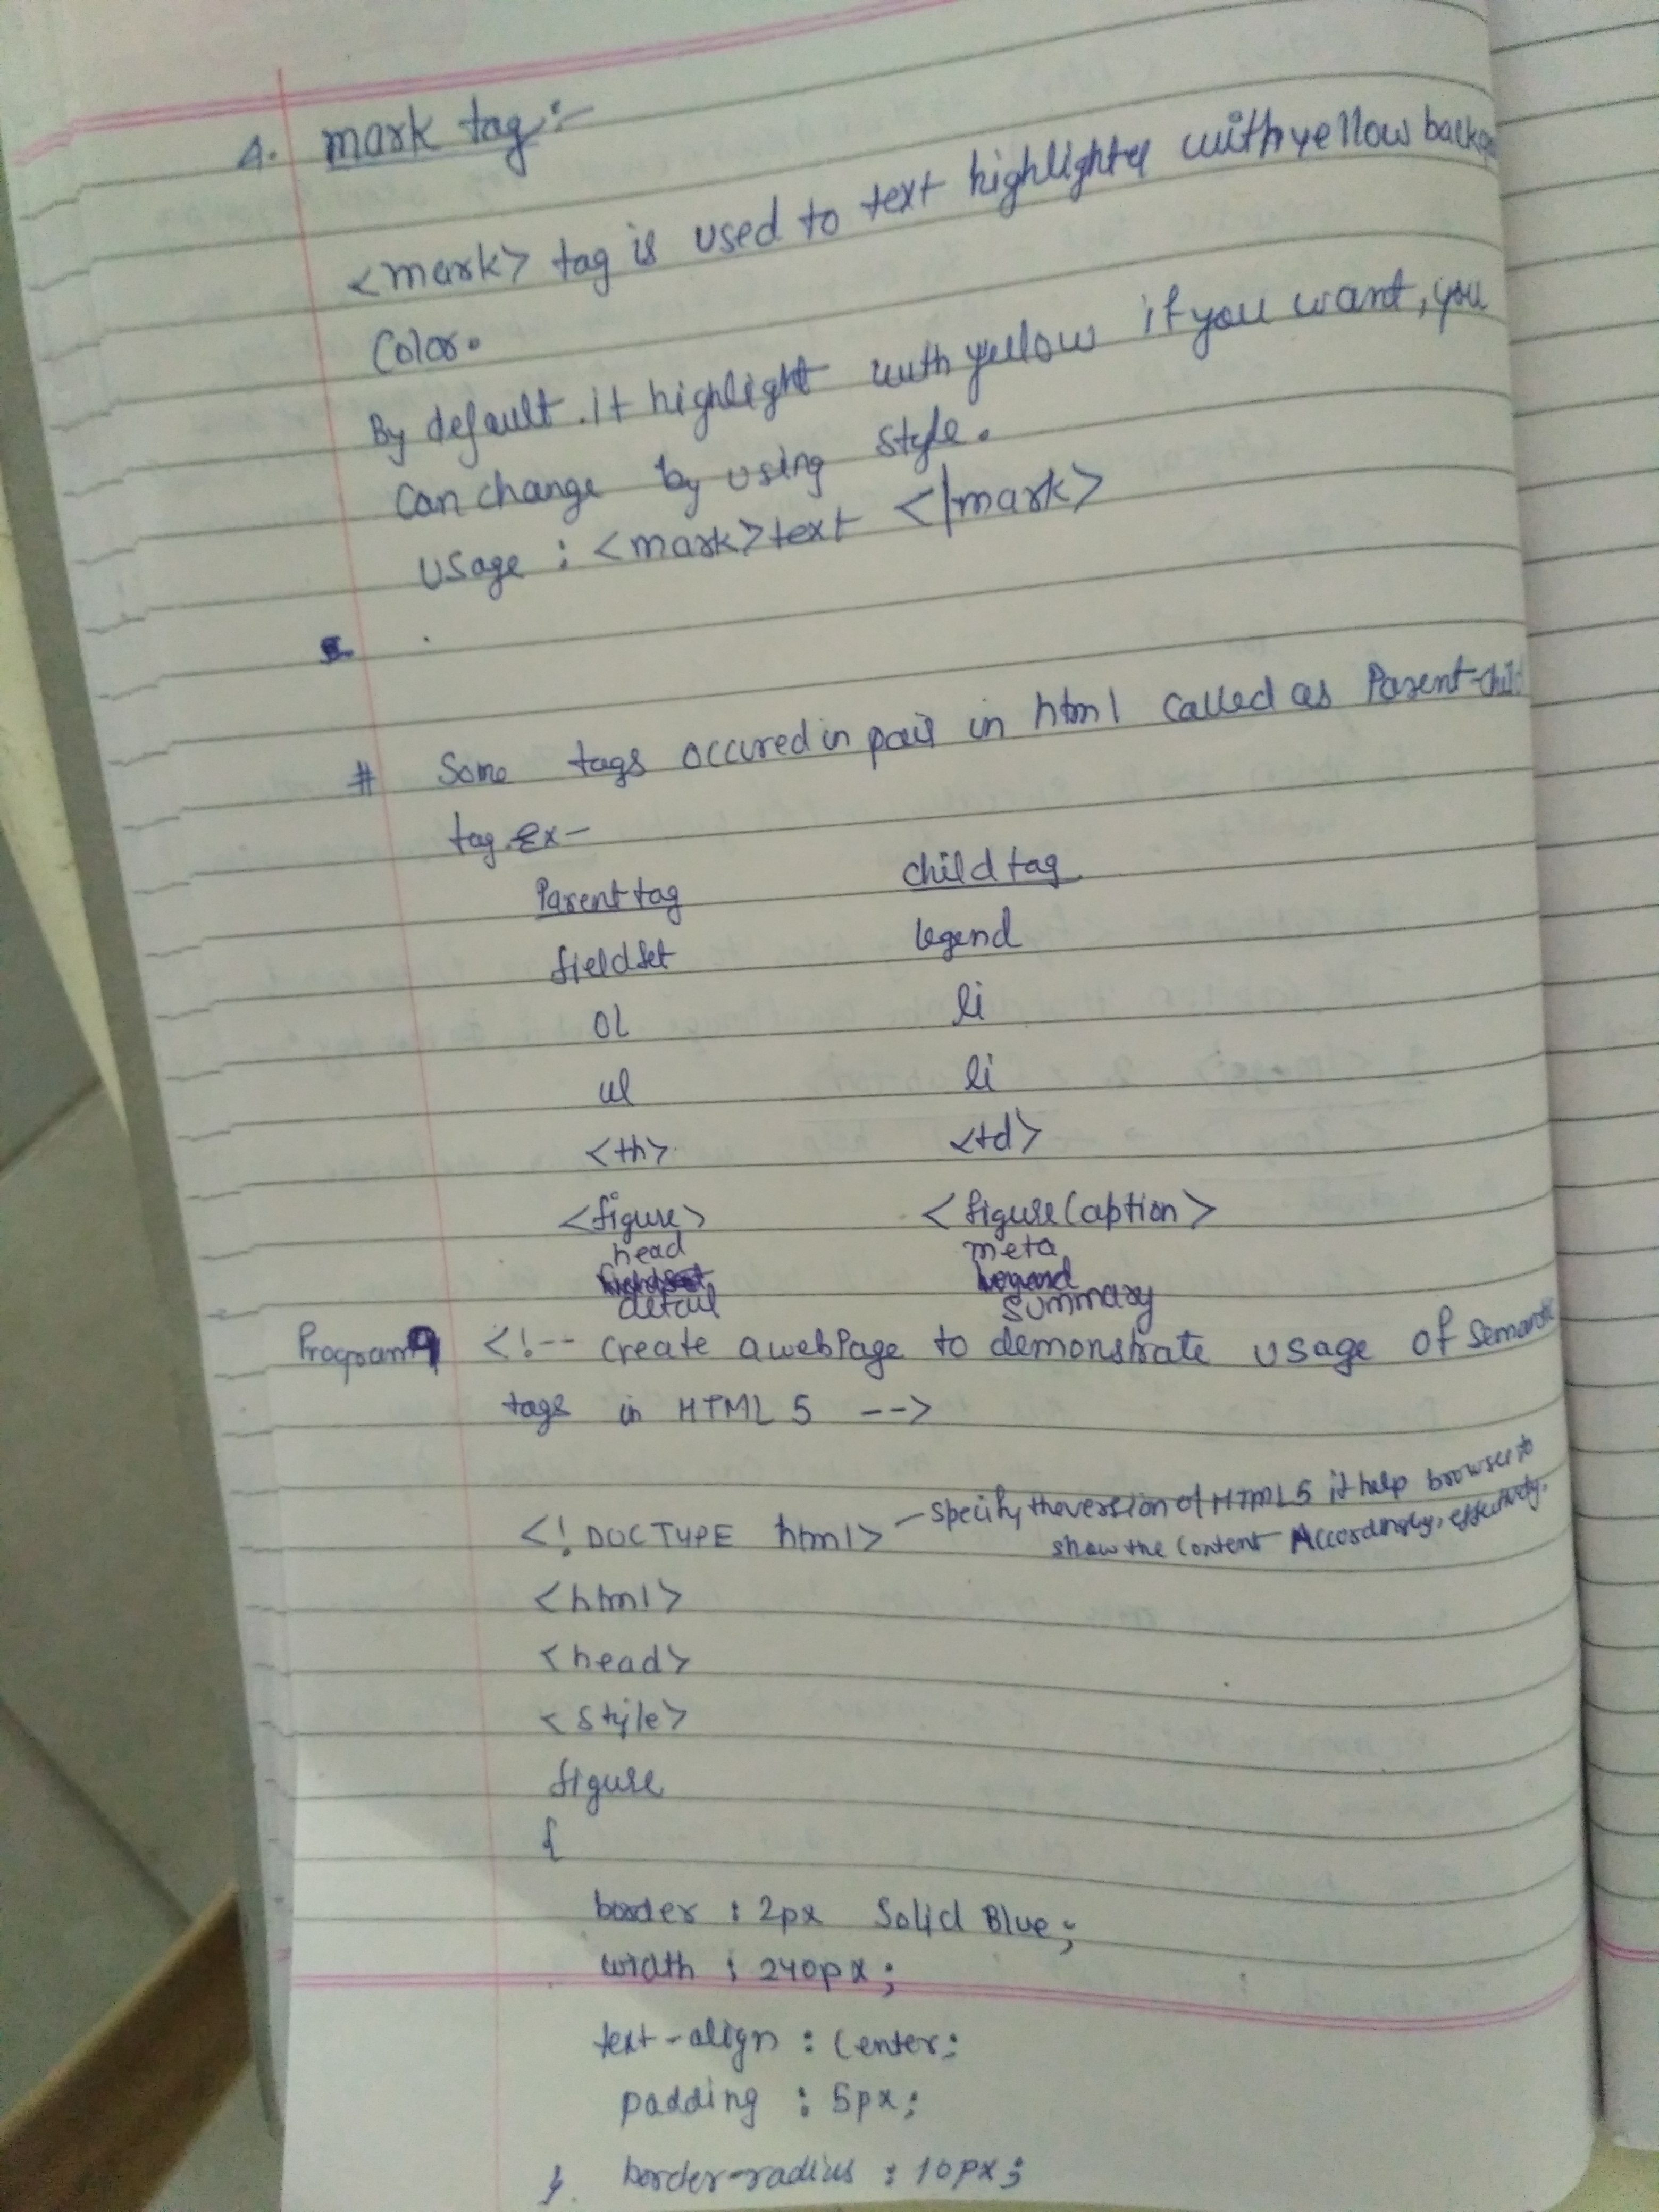 4. mark tag:-
<mark> tag is used to text highlighted with yellow
Color.
By default. it highlight with yellow if you want, you
can change by using style.
Usage : <mark>text </mark>
# Some tags occured in pair in html called as Parent-child
tag. Ex-
Parent tag child tag
fieldset legend
ol li
ul li
<th> <td>
<figure> <figureCaption>
head meta
detail summary
Program 9 <!-- Create a webPage to demonstrate usage of
tags in HTML 5 -->
<!DOCTYPE html> - Specify the version of HTML5 it help browser to
show the Content Accordingly, effectively.
<html>
<head>
<style>
figure
{
border : 2px Solid Blue;
width : 240px;
text-align : Center;
padding : 5px;
} border-radius : 10px;